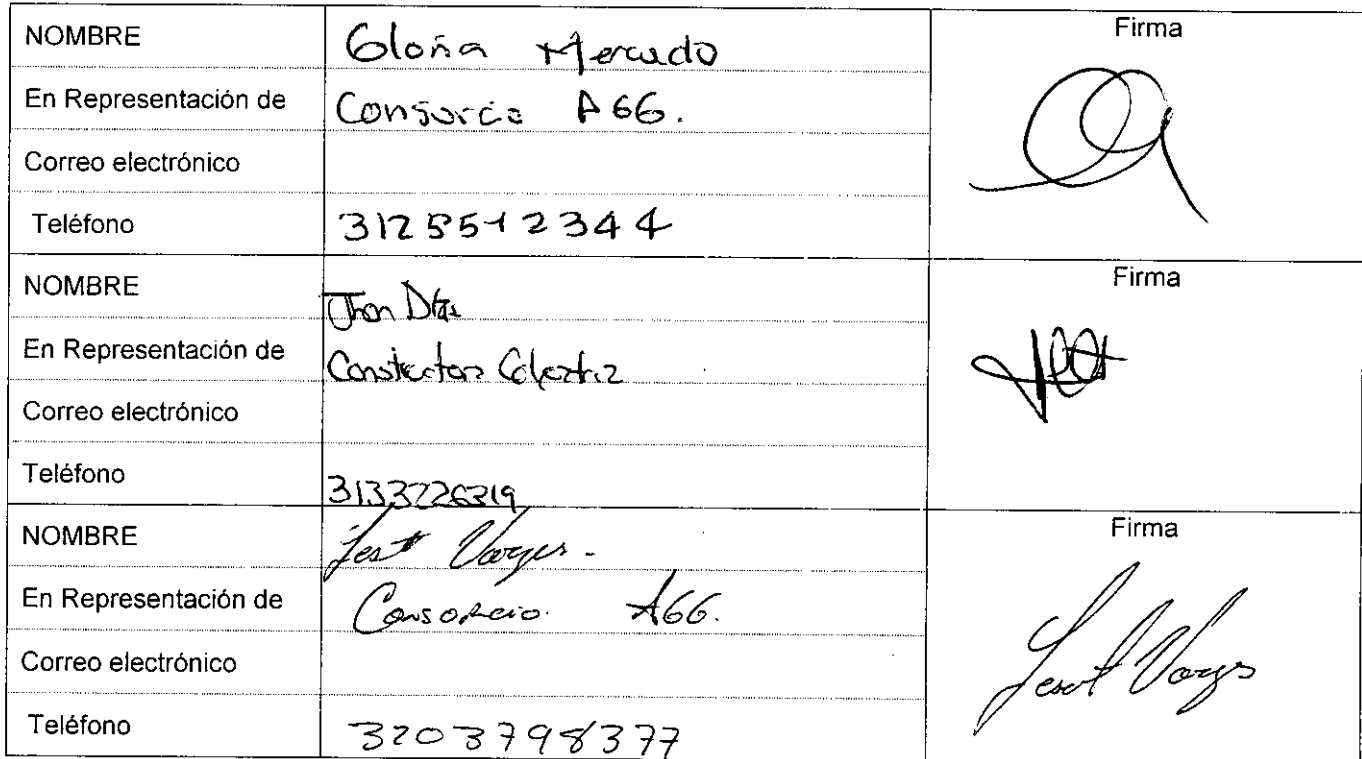 NOMBRE Gloria Mercado Firma
En Representación de Consorcio A66.
Correo electrónico
Teléfono 3125512344
NOMBRE Jhon Firma
En Representación de
Correo electrónico
Teléfono 3133226319
NOMBRE Vargas - Firma
En Representación de Consorcio. A66.
Correo electrónico
Vargas
Teléfono 3203798377